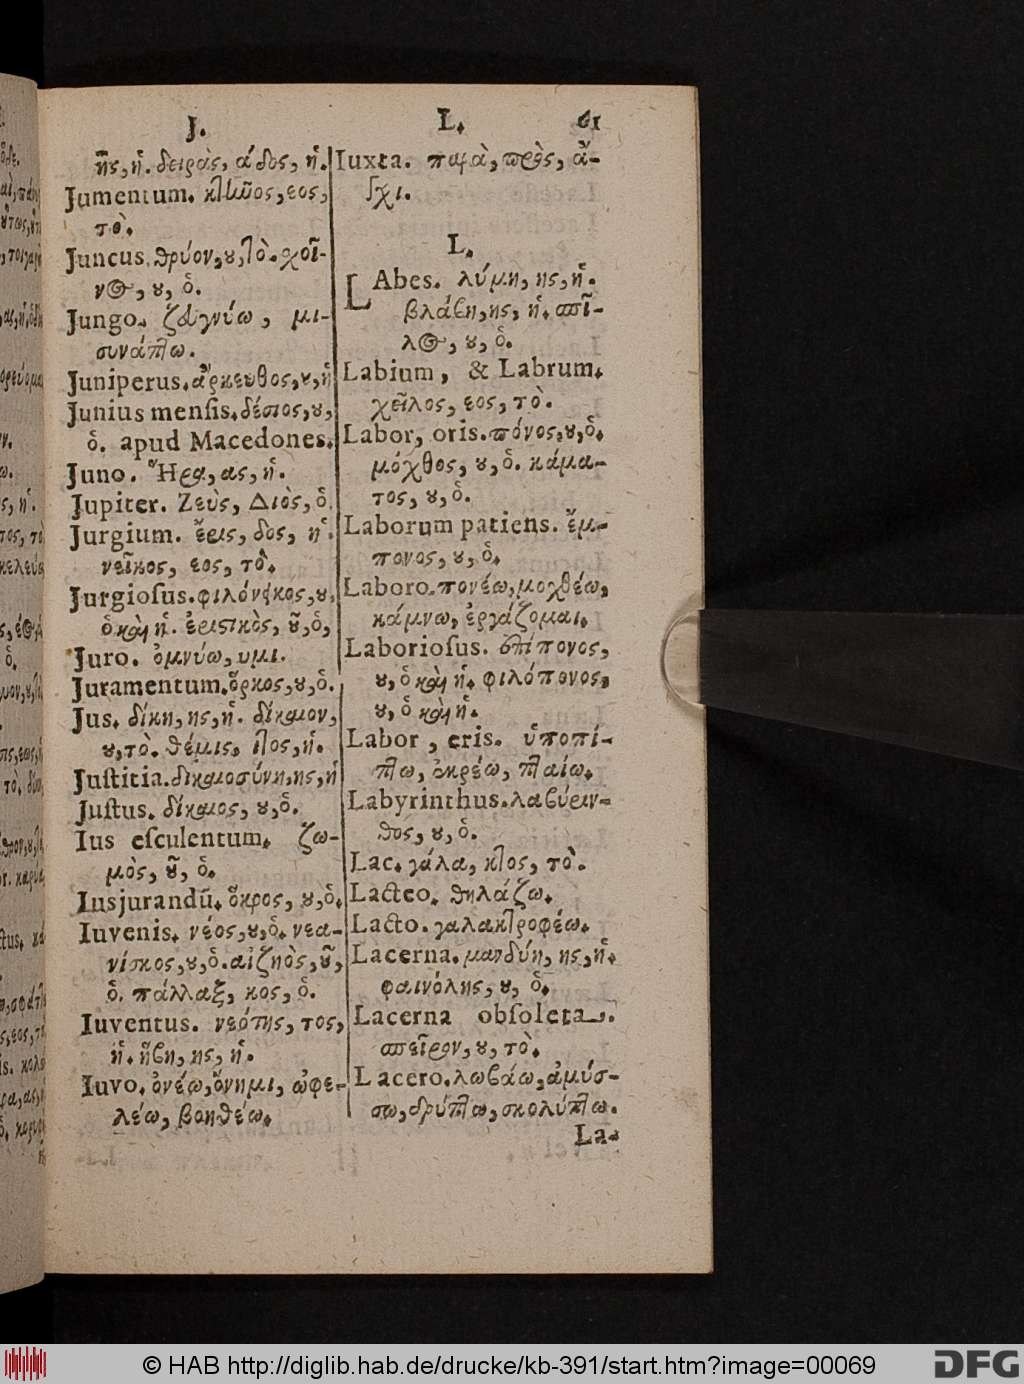 J.
ῆς, ἡ. δειρὰς, άδος, ἡ.
Jumentum. κτῆνος, εος,
τὸ.
Juncus. θρύον, ου, τὸ. χοῖ-
νος, ου, ὁ.
Jungo. ζευγνύω, μι-
συνάπτω.
Juniperus. ἄρκευθος, ου, ἡ
Junius menſis. δέσιος, ου,
ὁ. apud Macedones.
Juno. Ἥρα, ας, ἡ.
Jupiter. Ζεὺς, Διὸς, ὁ.
Jurgium. ἔρις, δος, ἡ.
νεῖκος, εος, τὸ.
Jurgioſus. φιλόνεικος, ου,
ὁ καὶ ἡ. ἐριστικὸς, οῦ, ὁ,
Juro. ὀμνύω, υμι.
Juramentum. ὅρκος, ου, ὁ.
Jus. δίκη, ης, ἡ. δίκαιον,
ου, τὸ. θέμις, ιτος, ἡ.
Juſtitia. δικαιοσύνη, ης, ἡ
Juſtus. δίκαιος, ου, ὁ.
Ius eſculentum. ζω-
μὸς, οῦ, ὁ.
Iusjurandũ. ὅκρος, ου, ὁ.
Iuvenis. νέος, ου, ὁ. νεα-
νίσκος, ου, ὁ. αἰζηὸς, οῦ,
ὁ. πάλλαξ, κος, ὁ.
Iuventus. νεότης, τος,
ἡ. ἥβη, ης, ἡ.
Iuvo. ὀνέω, ὄνημι, ὠφε-
λέω, βοηθέω.
L. 61
Iuxta. παρὰ, πρὸς, ἄ-
γχι.
L.
LAbes. λύμη, ης, ἡ.
βλάβη, ης, ἡ. σπῖ-
λος, ου, ὁ.
Labium, & Labrum.
χεῖλος, εος, τὸ.
Labor, oris. πόνος, ου, ὁ.
μόχθος, ου, ὁ. κάμα-
τος, ου, ὁ.
Laborum patiens. ἔμ-
πονος, ου, ὁ.
Laboro. πονέω, μοχθέω,
κάμνω, ἐργάζομαι.
Laborioſus. ἐπίπονος,
ου, ὁ καὶ ἡ. φιλόπονος,
ου, ὁ καὶ ἡ.
Labor, eris. ὑποπί-
πτω, ἐκρέω, πταίω.
Labyrinthus. λαβύριν-
θος, ου, ὁ.
Lac. γάλα, κτος, τὸ.
Lacteo. θηλάζω.
Lacto. γαλακτροφέω.
Lacerna. μανδύη, ης, ἡ.
φαινόλης, ου, ὁ.
Lacerna obſoleta.
σπεῖρον, ου, τὸ.
Lacero. λωβάω, ἀμύσ-
σω, δρύπτω, σκολύπτω.
La-
© HAB http://diglib.hab.de/drucke/kb-391/start.htm?image=00069
DFG